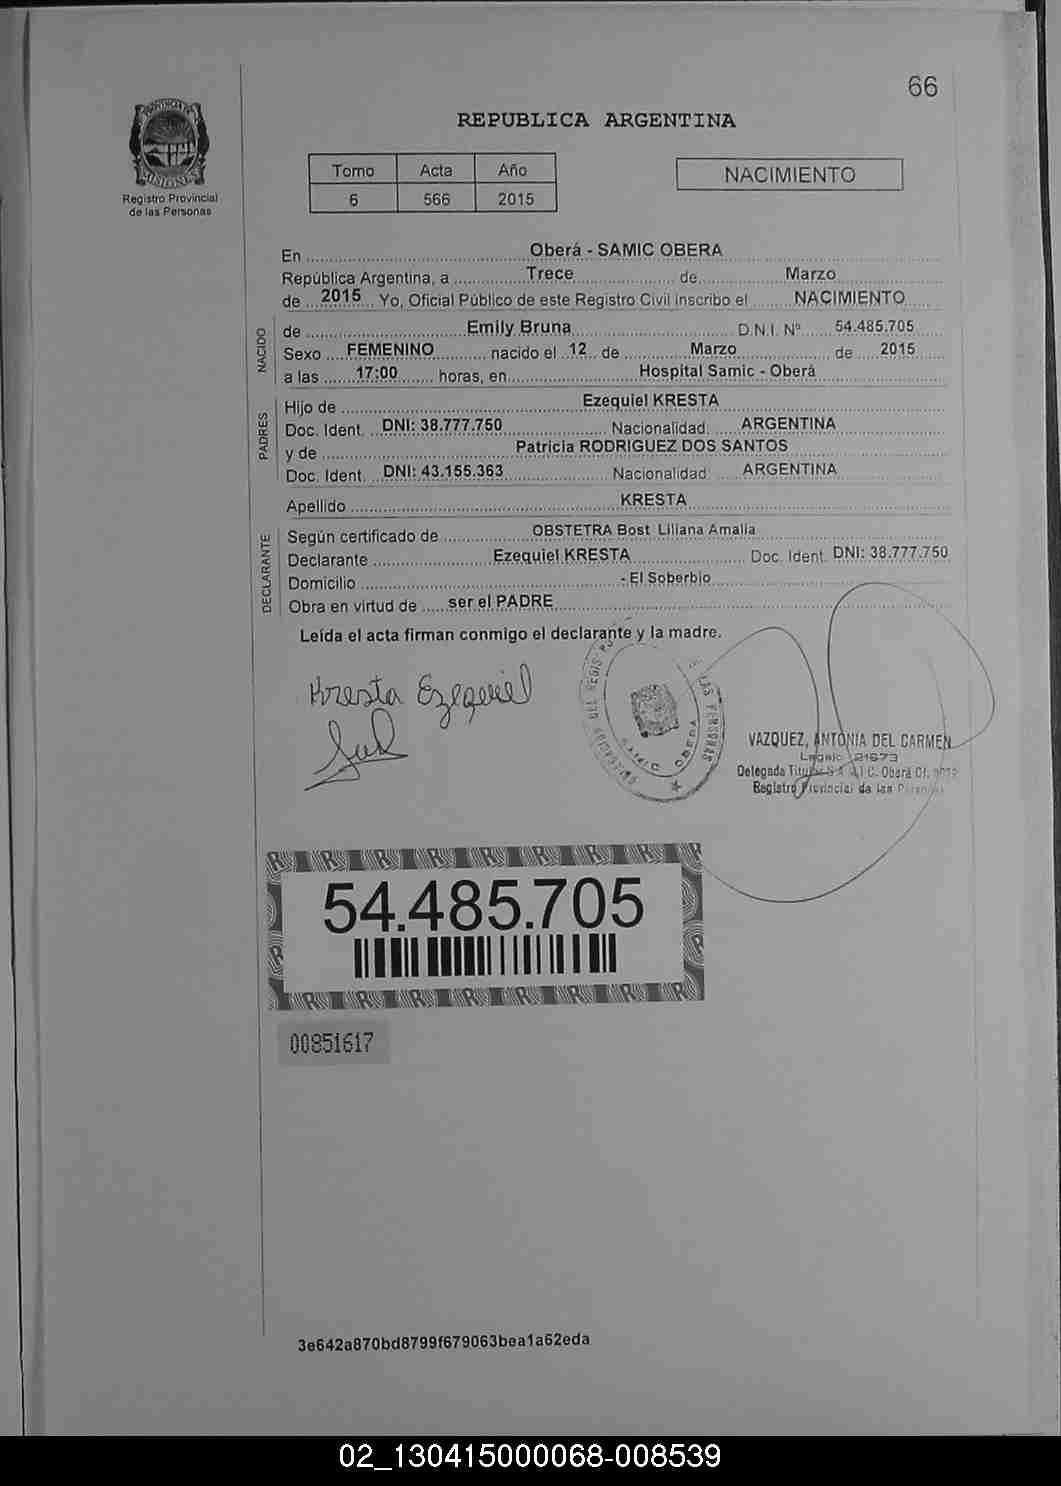 66
PROVINCIA DE
MISIONES
Registro Provincial
de las Personas
REPUBLICA ARGENTINA
Tomo Acta Año
6 566 2015
NACIMIENTO
En Oberá - SAMIC OBERA
República Argentina, a Trece de Marzo
de 2015 Yo, Oficial Público de este Registro Civil inscribo el NACIMIENTO
NACIDO
de Emily Bruna D.N.I. Nº 54.485.705
Sexo FEMENINO nacido el 12 de Marzo de 2015
a las 17:00 horas, en Hospital Samic - Oberá
PADRES
Hijo de Ezequiel KRESTA
Doc. Ident. DNI: 38.777.750 Nacionalidad: ARGENTINA
y de Patricia RODRIGUEZ DOS SANTOS
Doc. Ident. DNI: 43.155.363 Nacionalidad: ARGENTINA
Apellido KRESTA
DECLARANTE
Según certificado de OBSTETRA Bost Liliana Amalia
Declarante Ezequiel KRESTA Doc. Ident. DNI: 38.777.750
Domicilio - El Soberbio
Obra en virtud de ser el PADRE
Leída el acta firman conmigo el declarante y la madre.
Kresta Ezequiel
DEL REGIS LAS PERSONAS
SAMIC OBERA
VAZQUEZ, ANTONIA DEL CARMEN
Legajo 21673
Delegada Titular Oberá Of.
Registro Provincial de las Personas
54.485.705
00851617
3e642a870bd8799f679063bea1a62eda
02_130415000068-008539